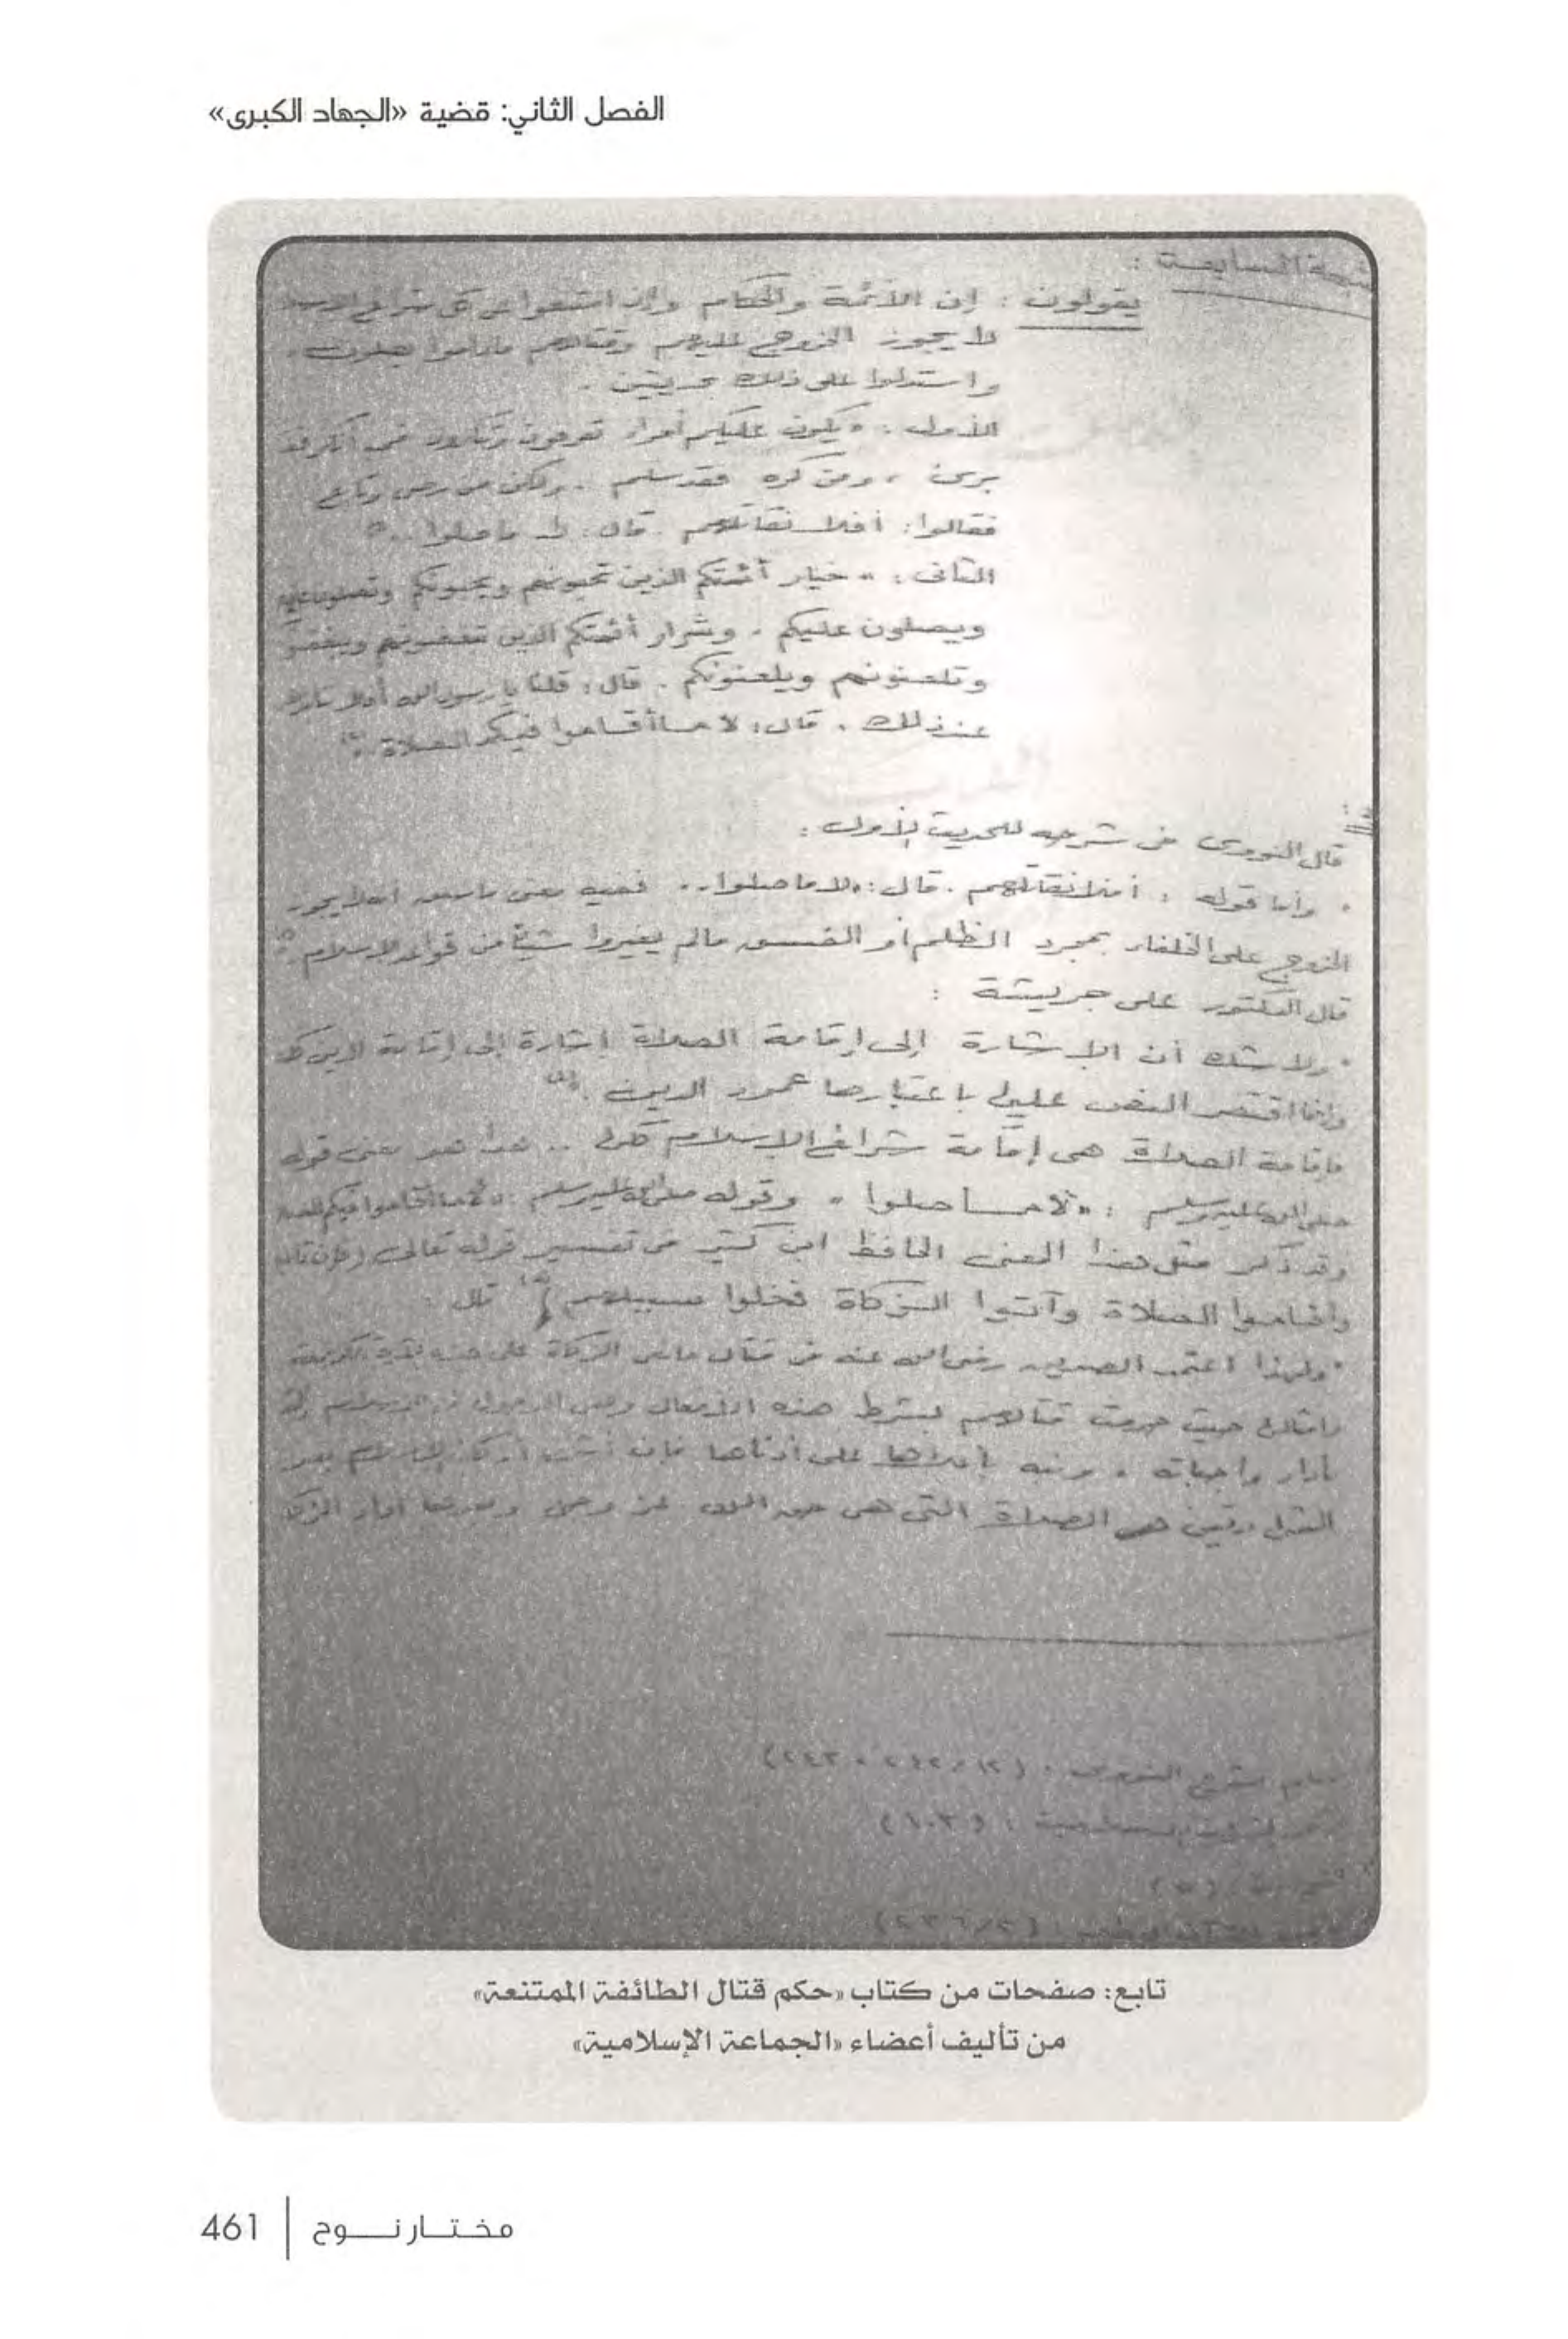 الفصل الثاني: قضية «الجهاد الكبرى»
السابعة :
يقولون : إن الأئمة والحكام وإن امتنعوا عن كل شرائع
لا يجوز الخروج عليهم وقتالهم ماداموا يصلون .
واستدلوا على ذلك بحديثين .
الأول : « يكون عليكم أمراء تعرفون وتنكرون فمن أنكر فقد
برئ ، ومن كره فقد سلم . ولكن من رضى وتابع
فقالوا : أفلا نقاتلهم . قال : لا ما صلوا .. »
الثانى : « خيار أئمتكم الذين تحبونهم ويحبونكم وتصلون
ويصلون عليكم . وشرار أئمتكم الذين تبغضونهم
وتلعنونهم ويلعنونكم . قال : قلنا يا رسول الله أفلا
عند ذلك . قال : لا ما أقاموا فيكم الصلاة . »
قال النووى فى شرحه للحديث الأول :
" وأما قوله : أفلا نقاتلهم . قال : « لا ما صلوا .. ففيه معنى ما سبق أنه لا يجوز
الخروج على الخلفاء بمجرد الظلم أو الفسق مالم يغيروا شيئا من قواعد الاسلام . "
قال الدكتور على جريشة :
" ولا شك أن الإشارة إلى إقامة الصلاة إشارة إلى إقامة الدين كله
وإنما اقتصر النص عليها باعتبارها عمود الدين . "
فإقامة الصلاة هى إقامة شرائع الإسلام كلها .. هذا هو معنى قوله
صلى الله عليه وسلم : « لا ما صلوا » وقوله صلى الله عليه وسلم « لا ما أقاموا فيكم
وقد ذكر مثل هذا المعنى الحافظ ابن كثير فى تفسير قوله تعالى ( فإن تابوا
وأقاموا الصلاة وآتوا الزكاة فخلوا سبيلهم ﴾ قال :
" ولهذا اعتمد الصديق رضى الله عنه فى قتال مانعى الزكاة على هذه الآية الكريمة
وأمثالها حيث حرمت قتالهم بشرط هذه الأفعال وهى الدخول فى
بأداء واجباته . ونبه بأعلاها على أدناها فإن أشرف أركان الإسلام بعد
الشهادتين هى الصلاة التى هى حق الله عز وجل وبعدها أداء الزكاة
شرح النووى : (١٢ / ٢٤٢ ، ٢٤٣)
تابع: صفحات من كتاب «حكم قتال الطائفة الممتنعة»
من تأليف أعضاء «الجماعة الإسلامية»
مختار نوح | 461